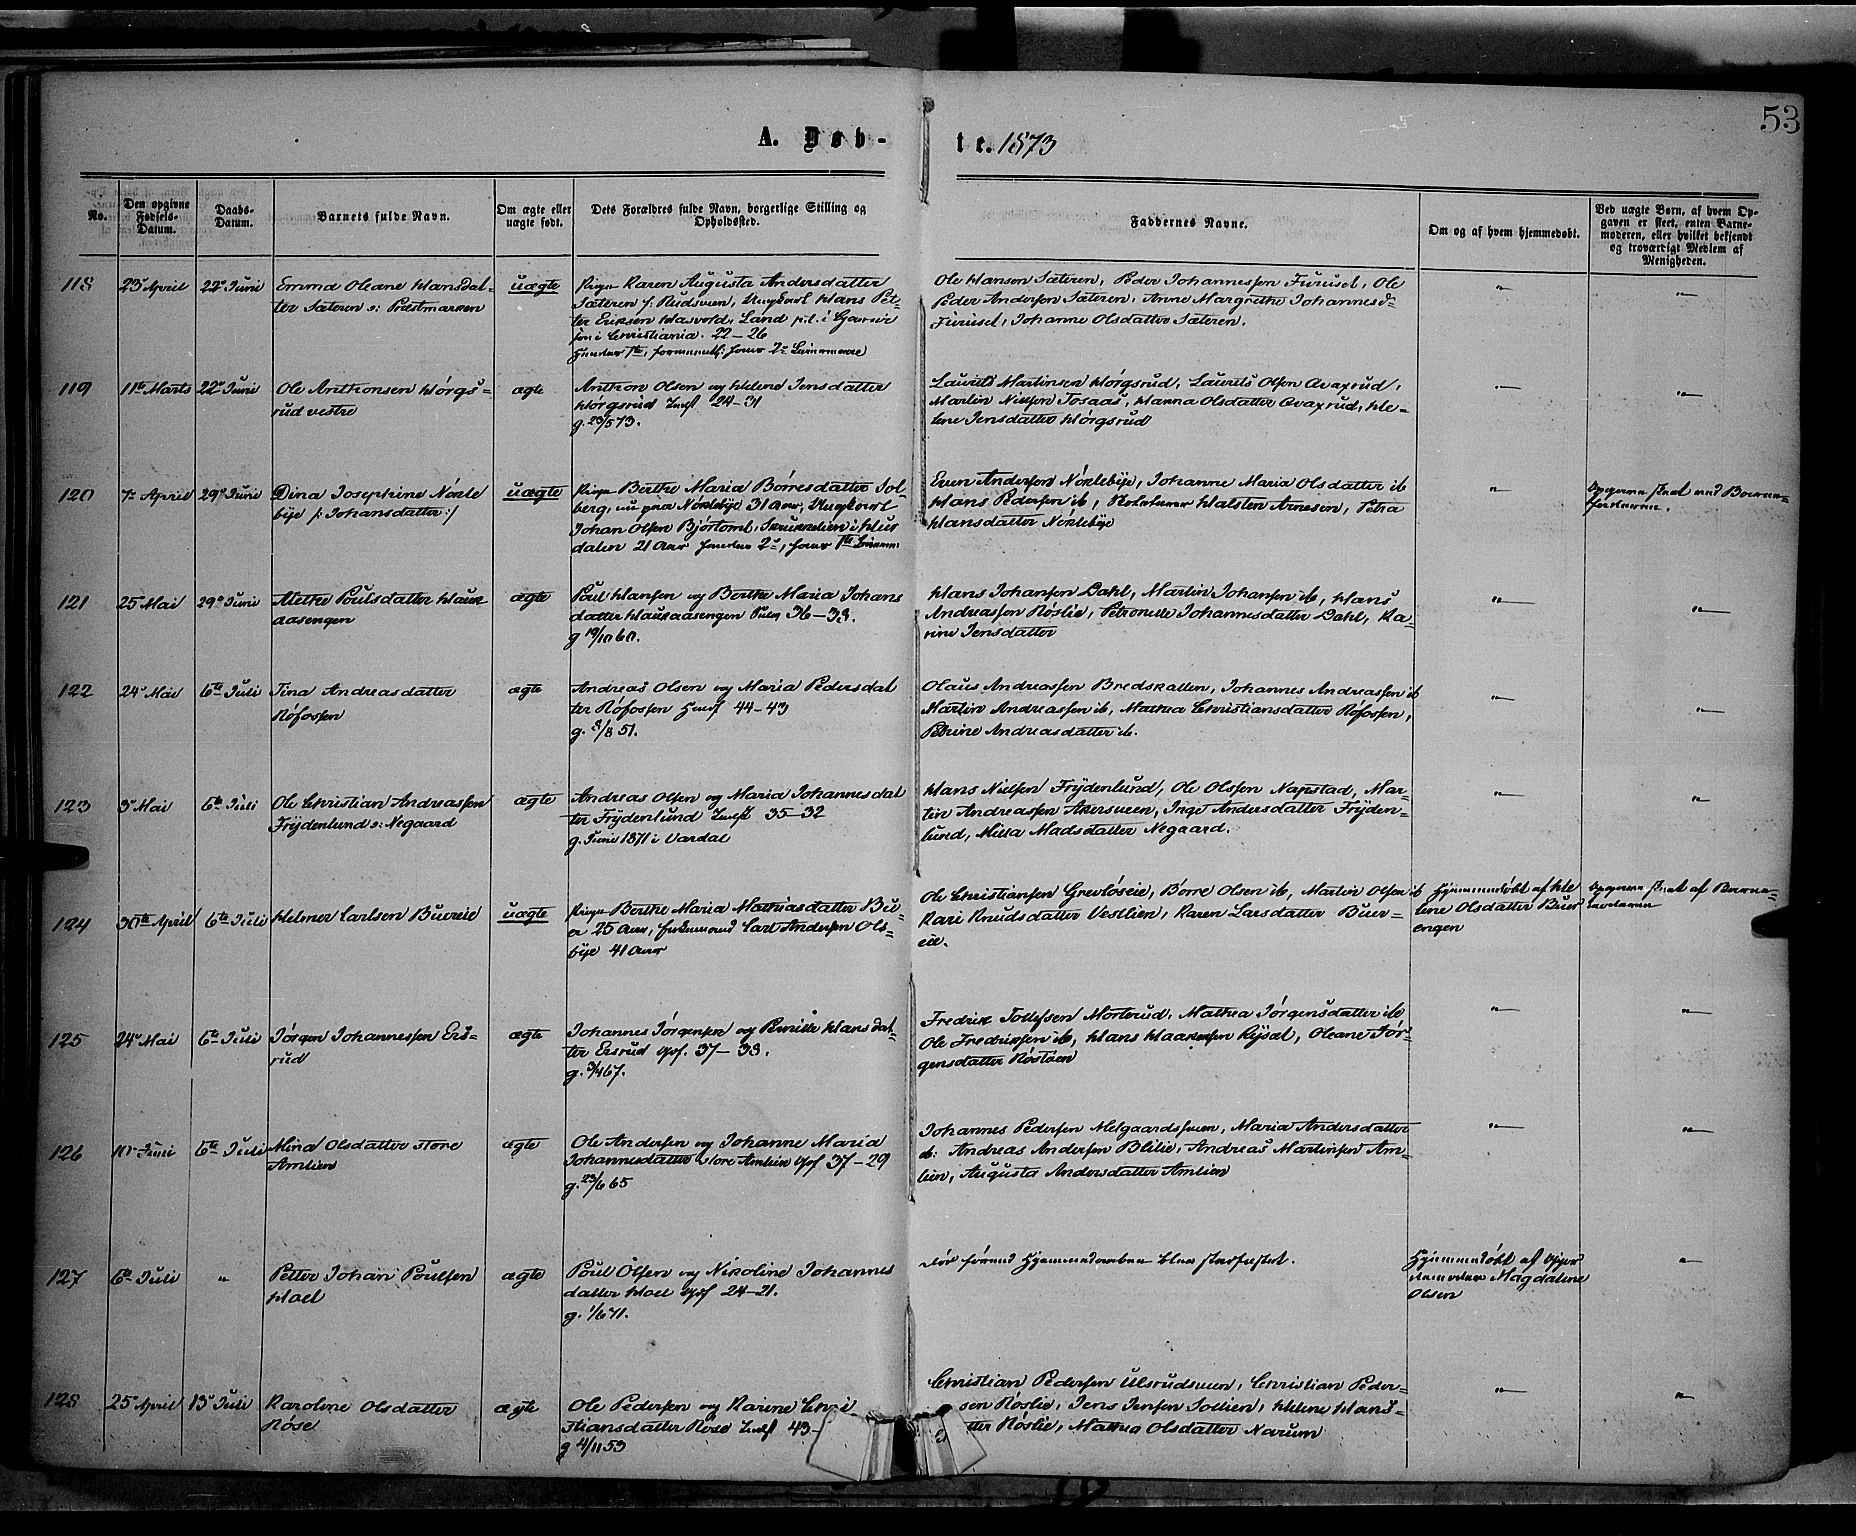 53
A. Døb- te. 1873
No.
Den opgivne Fødsels-Datum.
Daabs-Datum.
Barnets fulde Navn.
Om ægte eller uægte født.
Dets Forældres fulde Navn, borgerlige Stilling og Opholdssted.
Faddernes Navne.
Om og af hvem hjemmedøbt.
Ved uægte Børn, af hvem Opgaven er skeet, enten Barnemoderen, eller hvilket bekjendt og troværdigt Medlem af Menigheden.
118 23de April 22de Juni
Emma Oleane Hansdat-
ter Sæteren s: Præstmarken
uægte
Pige Karen Augusta Andersdatter
Sæteren f. Rudsveen, Ungkarl Hans Pet-
ter Eriksen Hasvold, Land
i Christiania. 22-26
Ole Hansen Sæteren, Peder Johannessen Furusel, Ole
Peder Andersen Sæteren, Anne Margrethe Johannesd
Furusel, Johanne Olsdatter Sæteren.
"
"
119 11te Marts 22de Juni
Ole Anthonsen Hørgs-
rud vestre
ægte
Anthon Olsen og Helene Jensdatter
Hørgsrud Indf 24-31
g. 23/5 73.
Laurits Martinsen Hørgsrud, Laurits Olsen Qvaxrud,
Martin Nielsen Tosaas, Hanna Olsdatter Qvaxrud, He-
lene Jensdatter Hørgsrud
"
"
120 7de April 29de Juni
Dina Josephine Nøkle
bye /: Johansdatter :/
uægte
Pige Berthe Maria Børresdatter Sol-
berg, nu paa Nøklebye 31 Aar, Ungkarl
Johan Olsen Bjørtomt, Skrukkelien i Hur
dalen 21 Aar
Even Andersen Nøklebye, Johanne Maria Olsdatter ib
Hans Pedersen ib, Halsten Arnesen, Petra
Hansdatter Nøklebye
"
121 25de Mai 29de Juni
Alethe Poulsdatter Hauk
aasengen
ægte
Poul Hansen og Berthe Maria Johans
datter Haukaasengen 36-38.
g 19/10 60.
Hans Johansen Dahl, Martin Johansen ib, Hans
Andreassen Røslie, Petronelle Johannesdatter Dahl, Ka-
rine Jensdatter
"
"
122 24de Mai 6te Juli
Tina Andreasdatter
Røfossen
ægte
Andreas Olsen og Maria Pedersdat
ter Røfossen 44-43
g. 8/8 51.
Olaus Andreassen Bredskallen, Johannes Andreassen ib
Martin Andreassen ib, Mathea Christiansdatter Røfossen,
Petrine Andreasdatter ib.
"
"
123 3de Mai 6te Juli
Ole Christian Andreassen
Frydenlund s: Negaard
ægte
Andreas Olsen og Maria Johannesdat
ter Frydenlund Indf 35-32
g. Juni 1871 i Vardal
Hans Nielsen Frydenlund, Ole Olsen Napstad, Mar-
tin Andreassen Akersveen, Inge Andersdatter Fryden-
lund, Mina Madsdatter Negaard.
"
"
124 30te April 6te Juli
Helmer Carlsen Buereie
uægte
Pige Berthe Maria Mathiasdatter Bu-
er 25 Aar, Carl Andersen Ols-
bye 41 Aar
Ole Christiansen Grevløseie, Børre Olsen ib, Martin Olsen ib
Kari Knudsdatter Vestlien, Karen Larsdatter Buer-
eie.
Hjemmedøbt af He
lene Olsdatter Buer
engen
125 24de Mai 6te Juli
Jørgen Johannessen Ers-
rud
ægte
Johannes Jørgensen og Pernille Hansdat-
ter Ersrud Gpf. 37-38.
g. 3/4 67.
Fredrik Tollefsen Morterud, Mathea Jørgensdatter ib
Ole Fredriksen ib, Hans Haakensen Rysæt, Oleane Jør-
gensdatter Røstøen
"
"
126 10de Juni 6te Juli
Mina Olsdatter store
Amlien
ægte
Ole Andersen og Johanne Maria
Johannesdatter store Amlien Gpf 37-29
g. 23/6 65
Johannes Pedersen Melgaardsveen, Maria Andersdatter
ib. Andreas Andersen Blilie, Andreas Martinsen Am-
lien, Augusta Andersdatter Amlien
"
"
127 6te Juli "
Petter Johan Poulsen
Hoel
ægte
Poul Olsen og Nikoline Johannes
datter Hoel Gpf 24-21.
g. 1/6 71.
Død førend Hjemmedaaben blev stadfæstet.
Hjemmedøbt af Gjor
demoder Magdalene
Olsen
"
128 25de April 13de Juli
Karoline Olsdatter
Røse
ægte
Ole Pedersen og Karine Chri
stiansdatter Røse Indf 43-
g 4/11 53
Christian Pedersen Ulsrudsveen, Christian Peder-
sen Røslie, Jens Jensen Sollien, Helene Hans-
tter Røslie, Mathea Olsdatter Narum
"
"